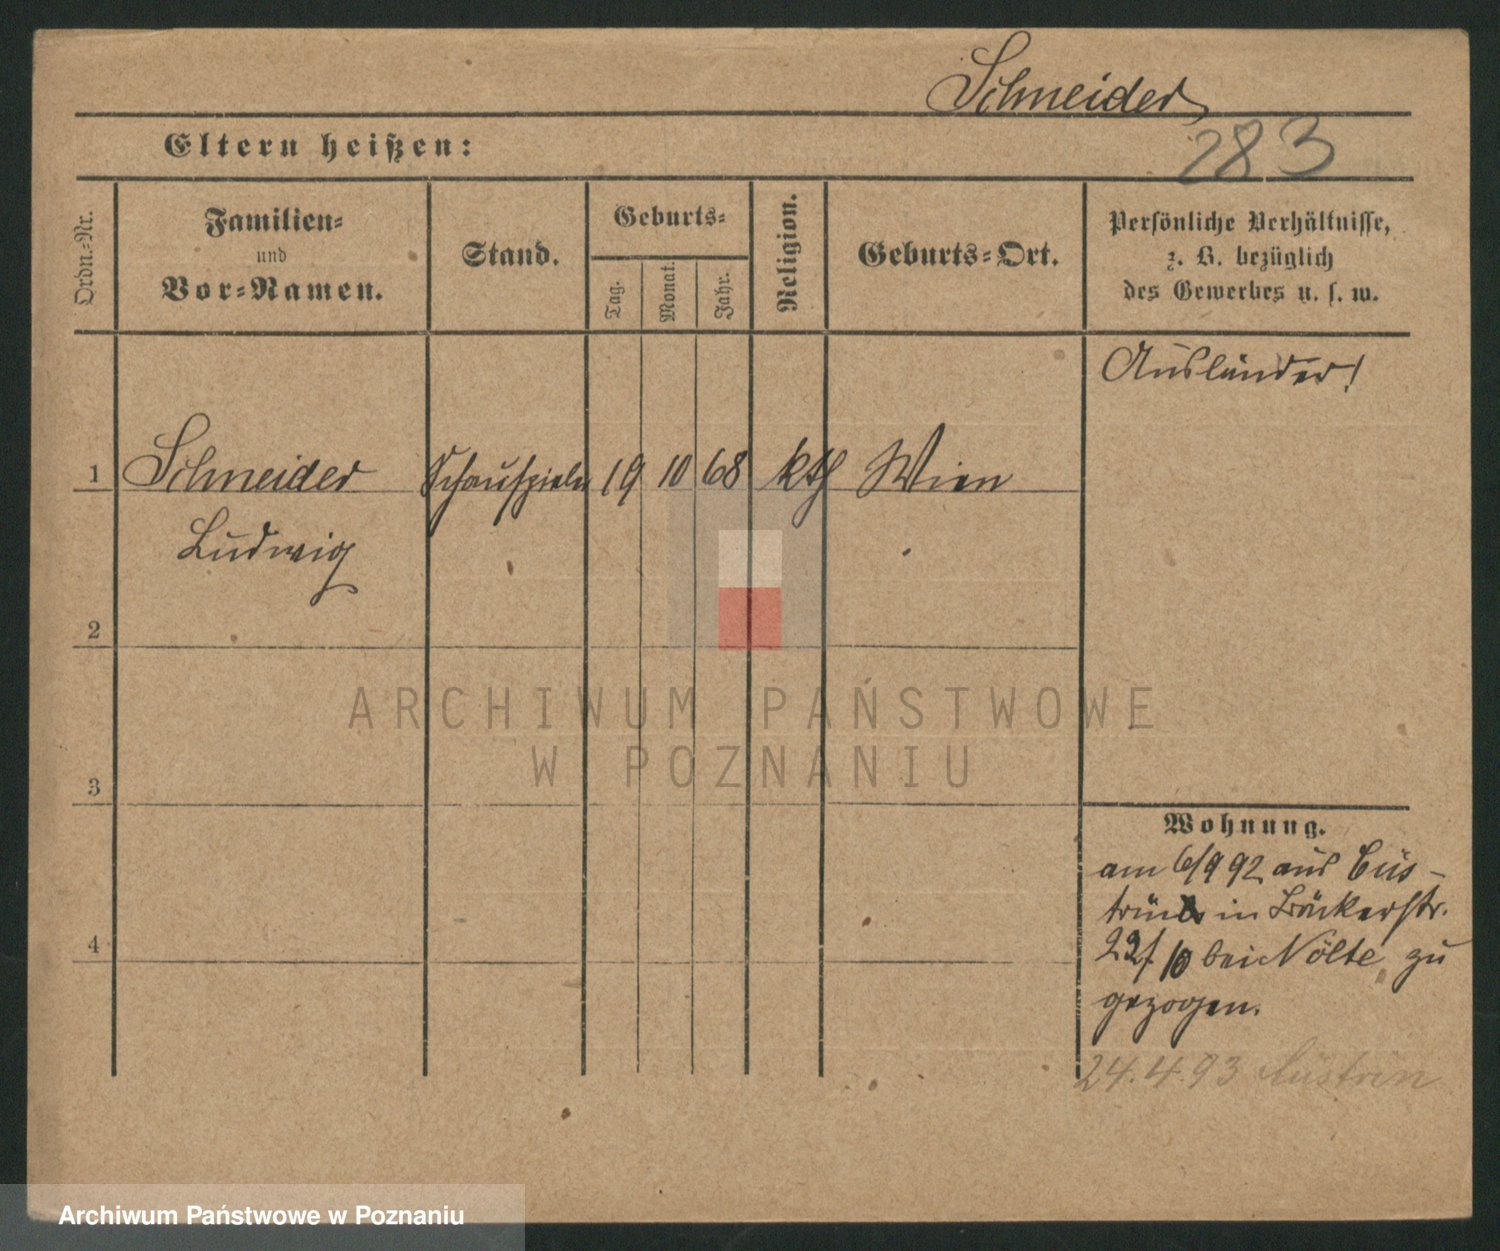 Schneider
283
Eltern heißen:
Ordn.-Nr.
Familien-
und
Vor-Namen.
Stand.
Geburts-
Tag.
Monat.
Jahr.
Religion.
Geburts-Ort.
Persönliche Verhältnisse,
z. B. bezüglich
des Gewerbes u. s. w.
Ausländer!
1 Schneider Schauspieler 19 10 68 kth Wien
Ludwig
2
ARCHIWUM PAŃSTWOWE
W POZNANIU
3
Wohnung.
am 6/9 92 aus Cüs-
trin in Bäckerstr.
22/ 10 bei Nölte zu
4
gezogen.
24.4.93 Küstrin
Archiwum Państwowe w Poznaniu